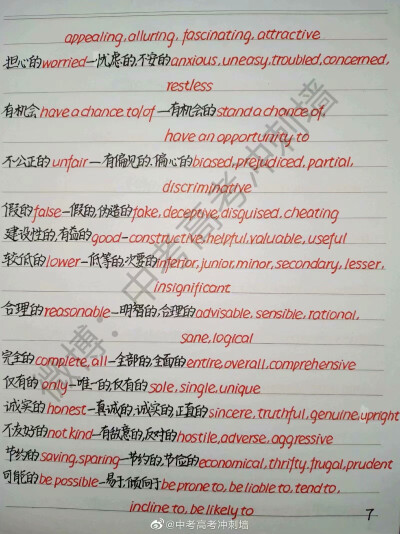 appealing, alluring, fascinating, attractive
担心的worried—忧虑的,不安的anxious, uneasy, troubled, concerned,
restless
有机会have a chance to/of—有机会的stand a chance of,
have an opportunity to
不公正的unfair—有偏见的,偏心的biased, prejudiced, partial,
discriminative
假的false—假的,伪造的fake, deceptive, disguised, cheating
建设性的,有益的good—constructive, helpful, valuable, useful
较低的lower—低等的,次要的inferior, junior, minor, secondary, lesser,
insignificant
合理的reasonable—明智的,合理的advisable, sensible, rational,
sane, logical
完全的complete, all—全部的,全面的entire, overall, comprehensive
仅有的only—唯一的,仅有的sole, single, unique
诚实的honest—真诚的,诚实的,正直的sincere, truthful, genuine, upright
不友好的not kind—有敌意的,反对的hostile, adverse, aggressive
节约的saving, sparing—节约的,节俭的economical, thrifty, frugal, prudent
可能的be possible—易于,倾向于be prone to, be liable to, tend to,
incline to, be likely to
7
微博:中考高考冲刺墙
@中考高考冲刺墙